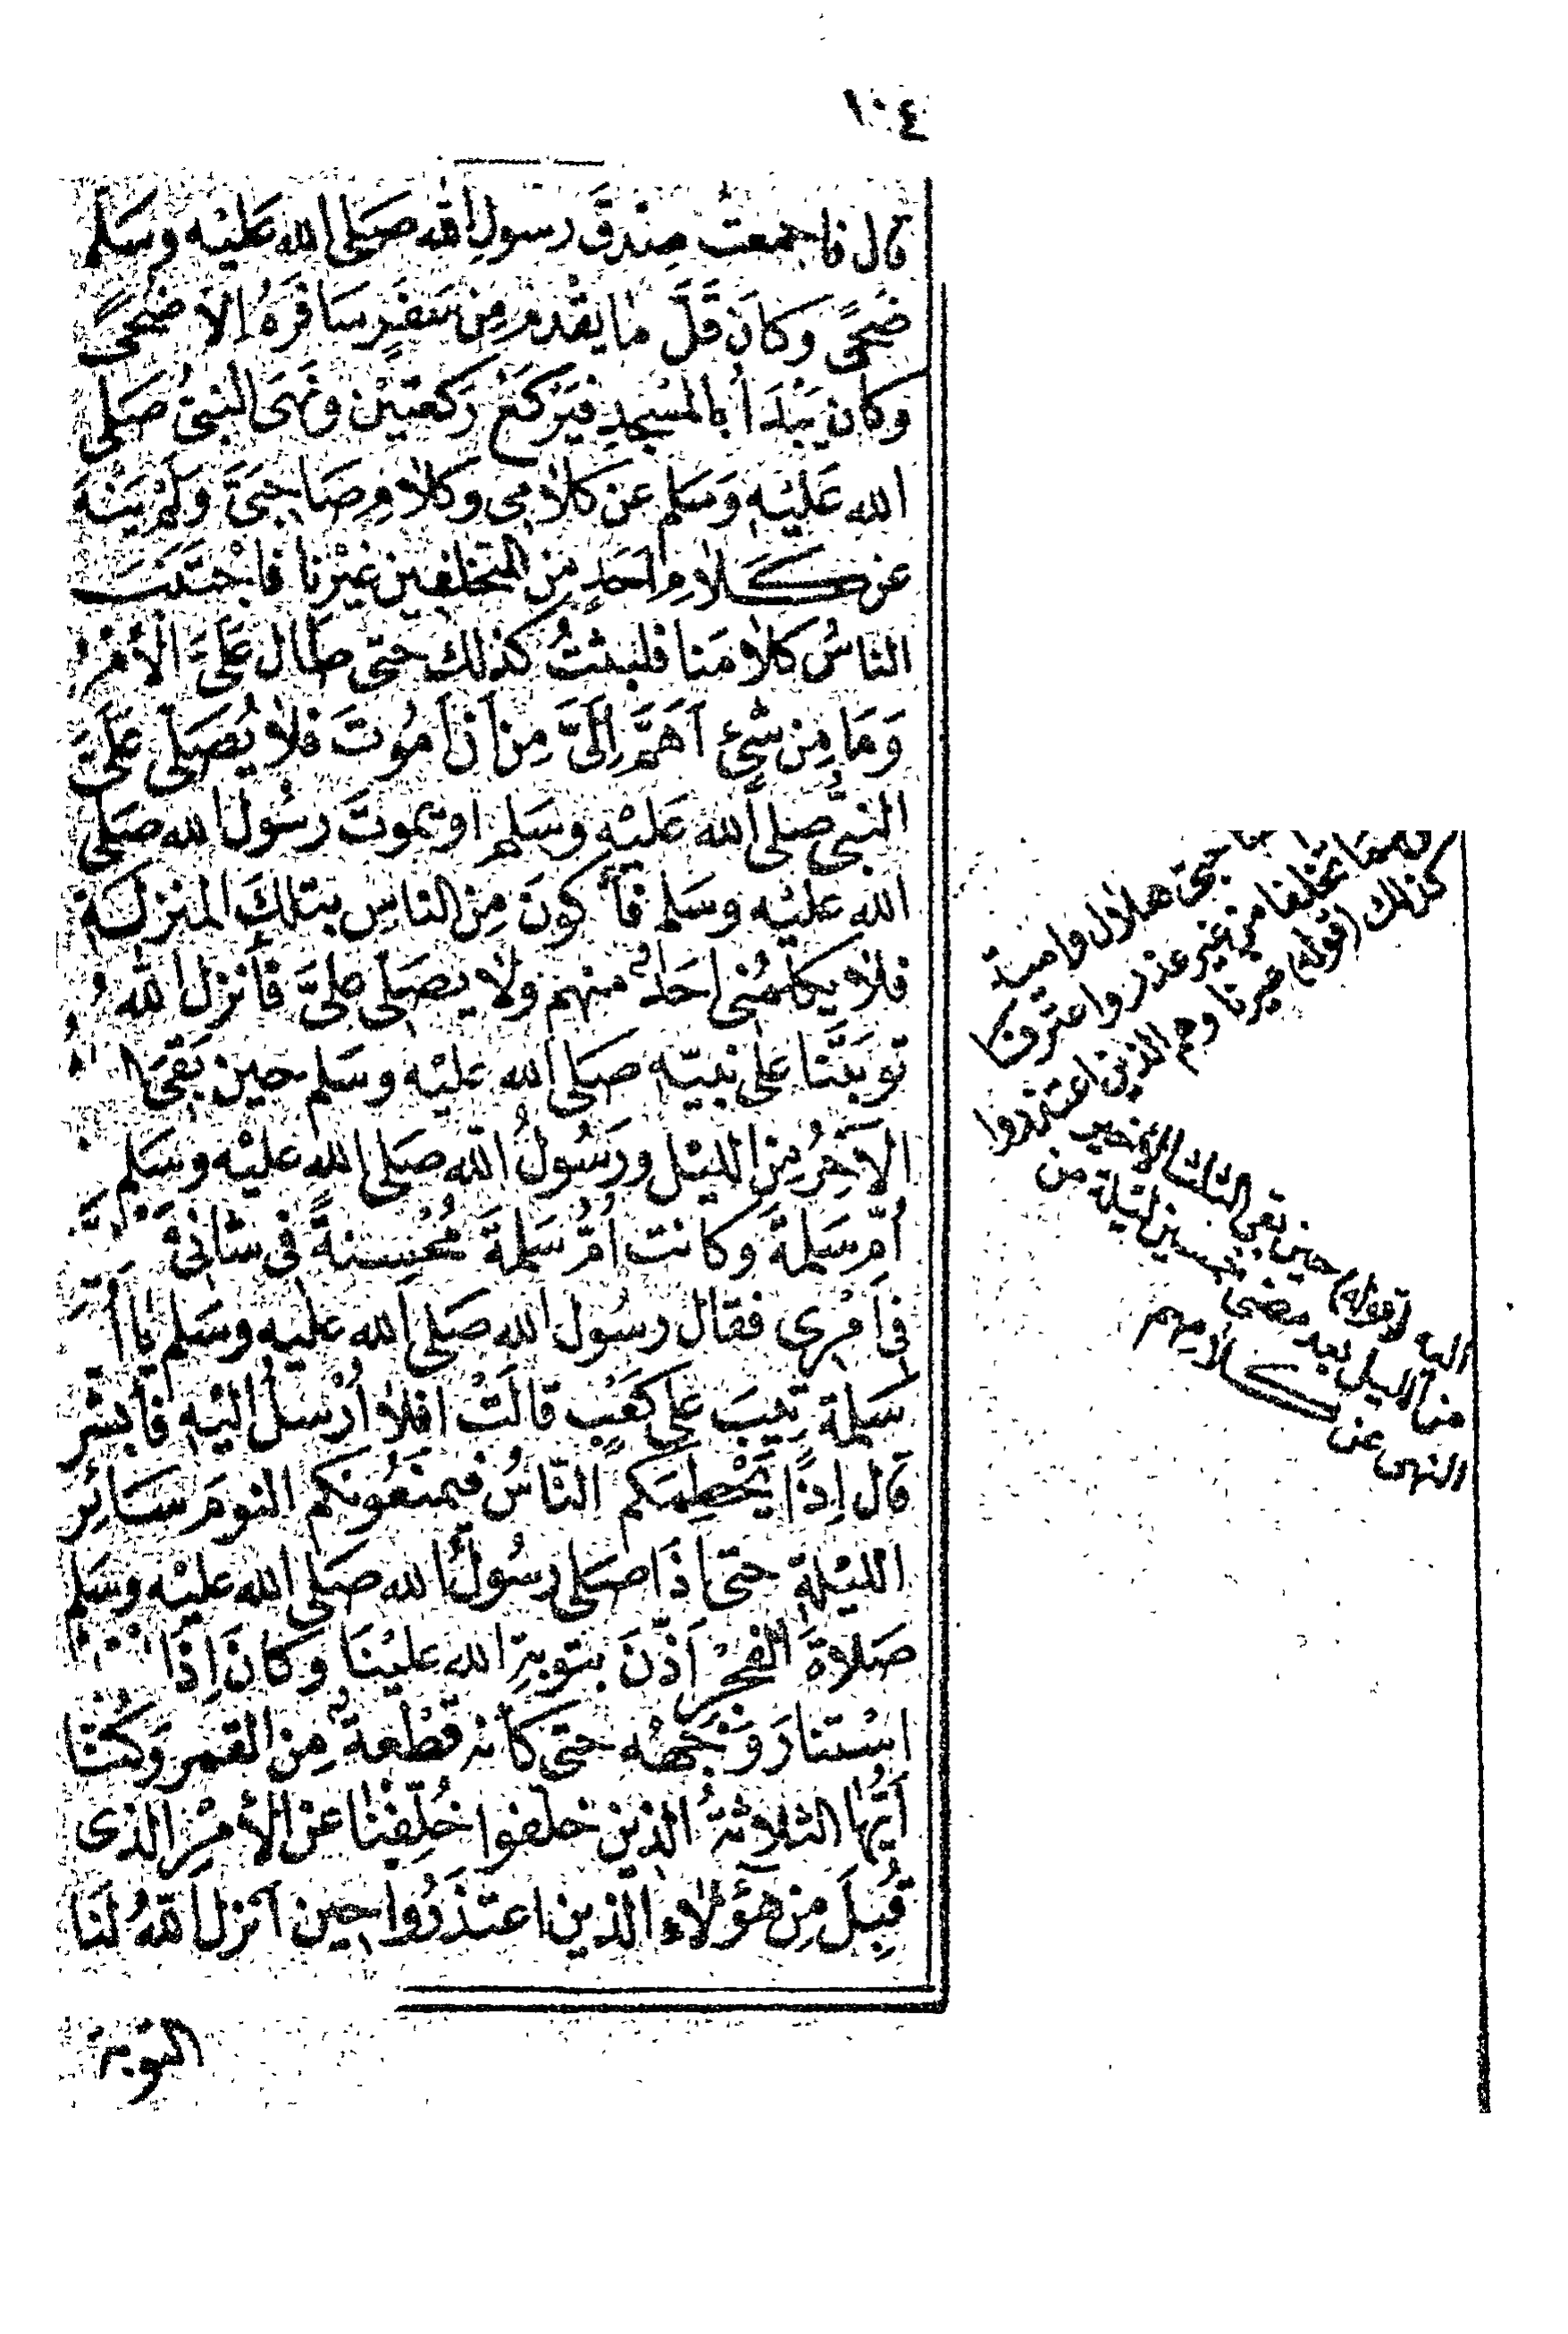 ١٠٤
قال فاجمعتُ صِدْقَ رسولِ الله صَلى الله عَلَيْه وسَلم
ضحًى وَكانَ قَلَّ ما يَقْدمُ مِن سَفَرٍ سَافَرَهُ اِلا ضُحًى
وكان يَبْدَأُ بالمَسْجِدِ فيَرْكَعُ رَكعتَيْن ونَهَى النبىُّ صَلى
الله عَلَيْه وَسَلم عن كلامى وكلامِ صَاحِبَىَّ وَلَم يَنْهَ
عن كَلامِ اَحَدٍ مِن المتخلفين غَيْرنا فاجْتَنَبَ
الناسُ كلامَنا فلبثتُ كذلك حَتى طَال عَلَىَّ الأمْرُ
وَمَا مِن شَىْءٍ اَهَمُّ اِلَىَّ مِن اَن اَمُوتَ فلا يُصَلى عَلَىَّ
النبىُّ صلى الله عَلَيْه وسَلم او يموتَ رسُول الله صَلى
الله عليْه وسَلم فأكونَ مِن الناس بتلكَ المنزلَةِ
فلا يكلمُنى اَحَدٌ منهم ولا يصَلى علىَّ فأنزل اللهُ
توبَتَنا على نبيّه صَلى الله عليْه وسَلم حين بَقىَ
الآخِرُ مِنَ الليْل ورَسُولُ الله صَلى الله عليْه وسَلم
اُمّ سَلمةَ وكانت اُمُّ سَلمةَ مُحْسِنةً فى شانى
فى اَمْرى فقال رسُول الله صَلى الله عليه وسَلم يا أُ
سَلمة تِيبَ على كَعْبٍ قالَتْ افلا اُرْسلُ اليْه فأبشر
قال اِذًا يَحْطِمَكم النّاسُ فيمنعُونكم النومَ سَائِر
الليْلةِ حتى اِذَا صَلى رسُولُ الله صَلى الله عليْه وسَلم
صَلاةَ الفَجْر اَذّنَ بتوبةِ الله عليْنَا وَكانَ اِذَا
اسْتنارَ وَجْهُه حتى كأنه قطْعةٌ مِن القمر وَكُنّا
اَيُّها الثلاثةُ الذين خلفوا خُلِّفْنا عن الأمْرِ الذى
قُبِلَ مِن هَؤُلاء الذين اعتذَرُوا حين اَنزل اللهُ لَنَا
التوبة
هلال وامية
تخلفا من غير عذر واعترفا
كذلك (قوله) غيرنا وهم الذين اعتذروا
اليه (قوله) حين بقى الثلث الاخير
من الليل بعد مضى خمسين ليلة من
النهى عن كلامهم